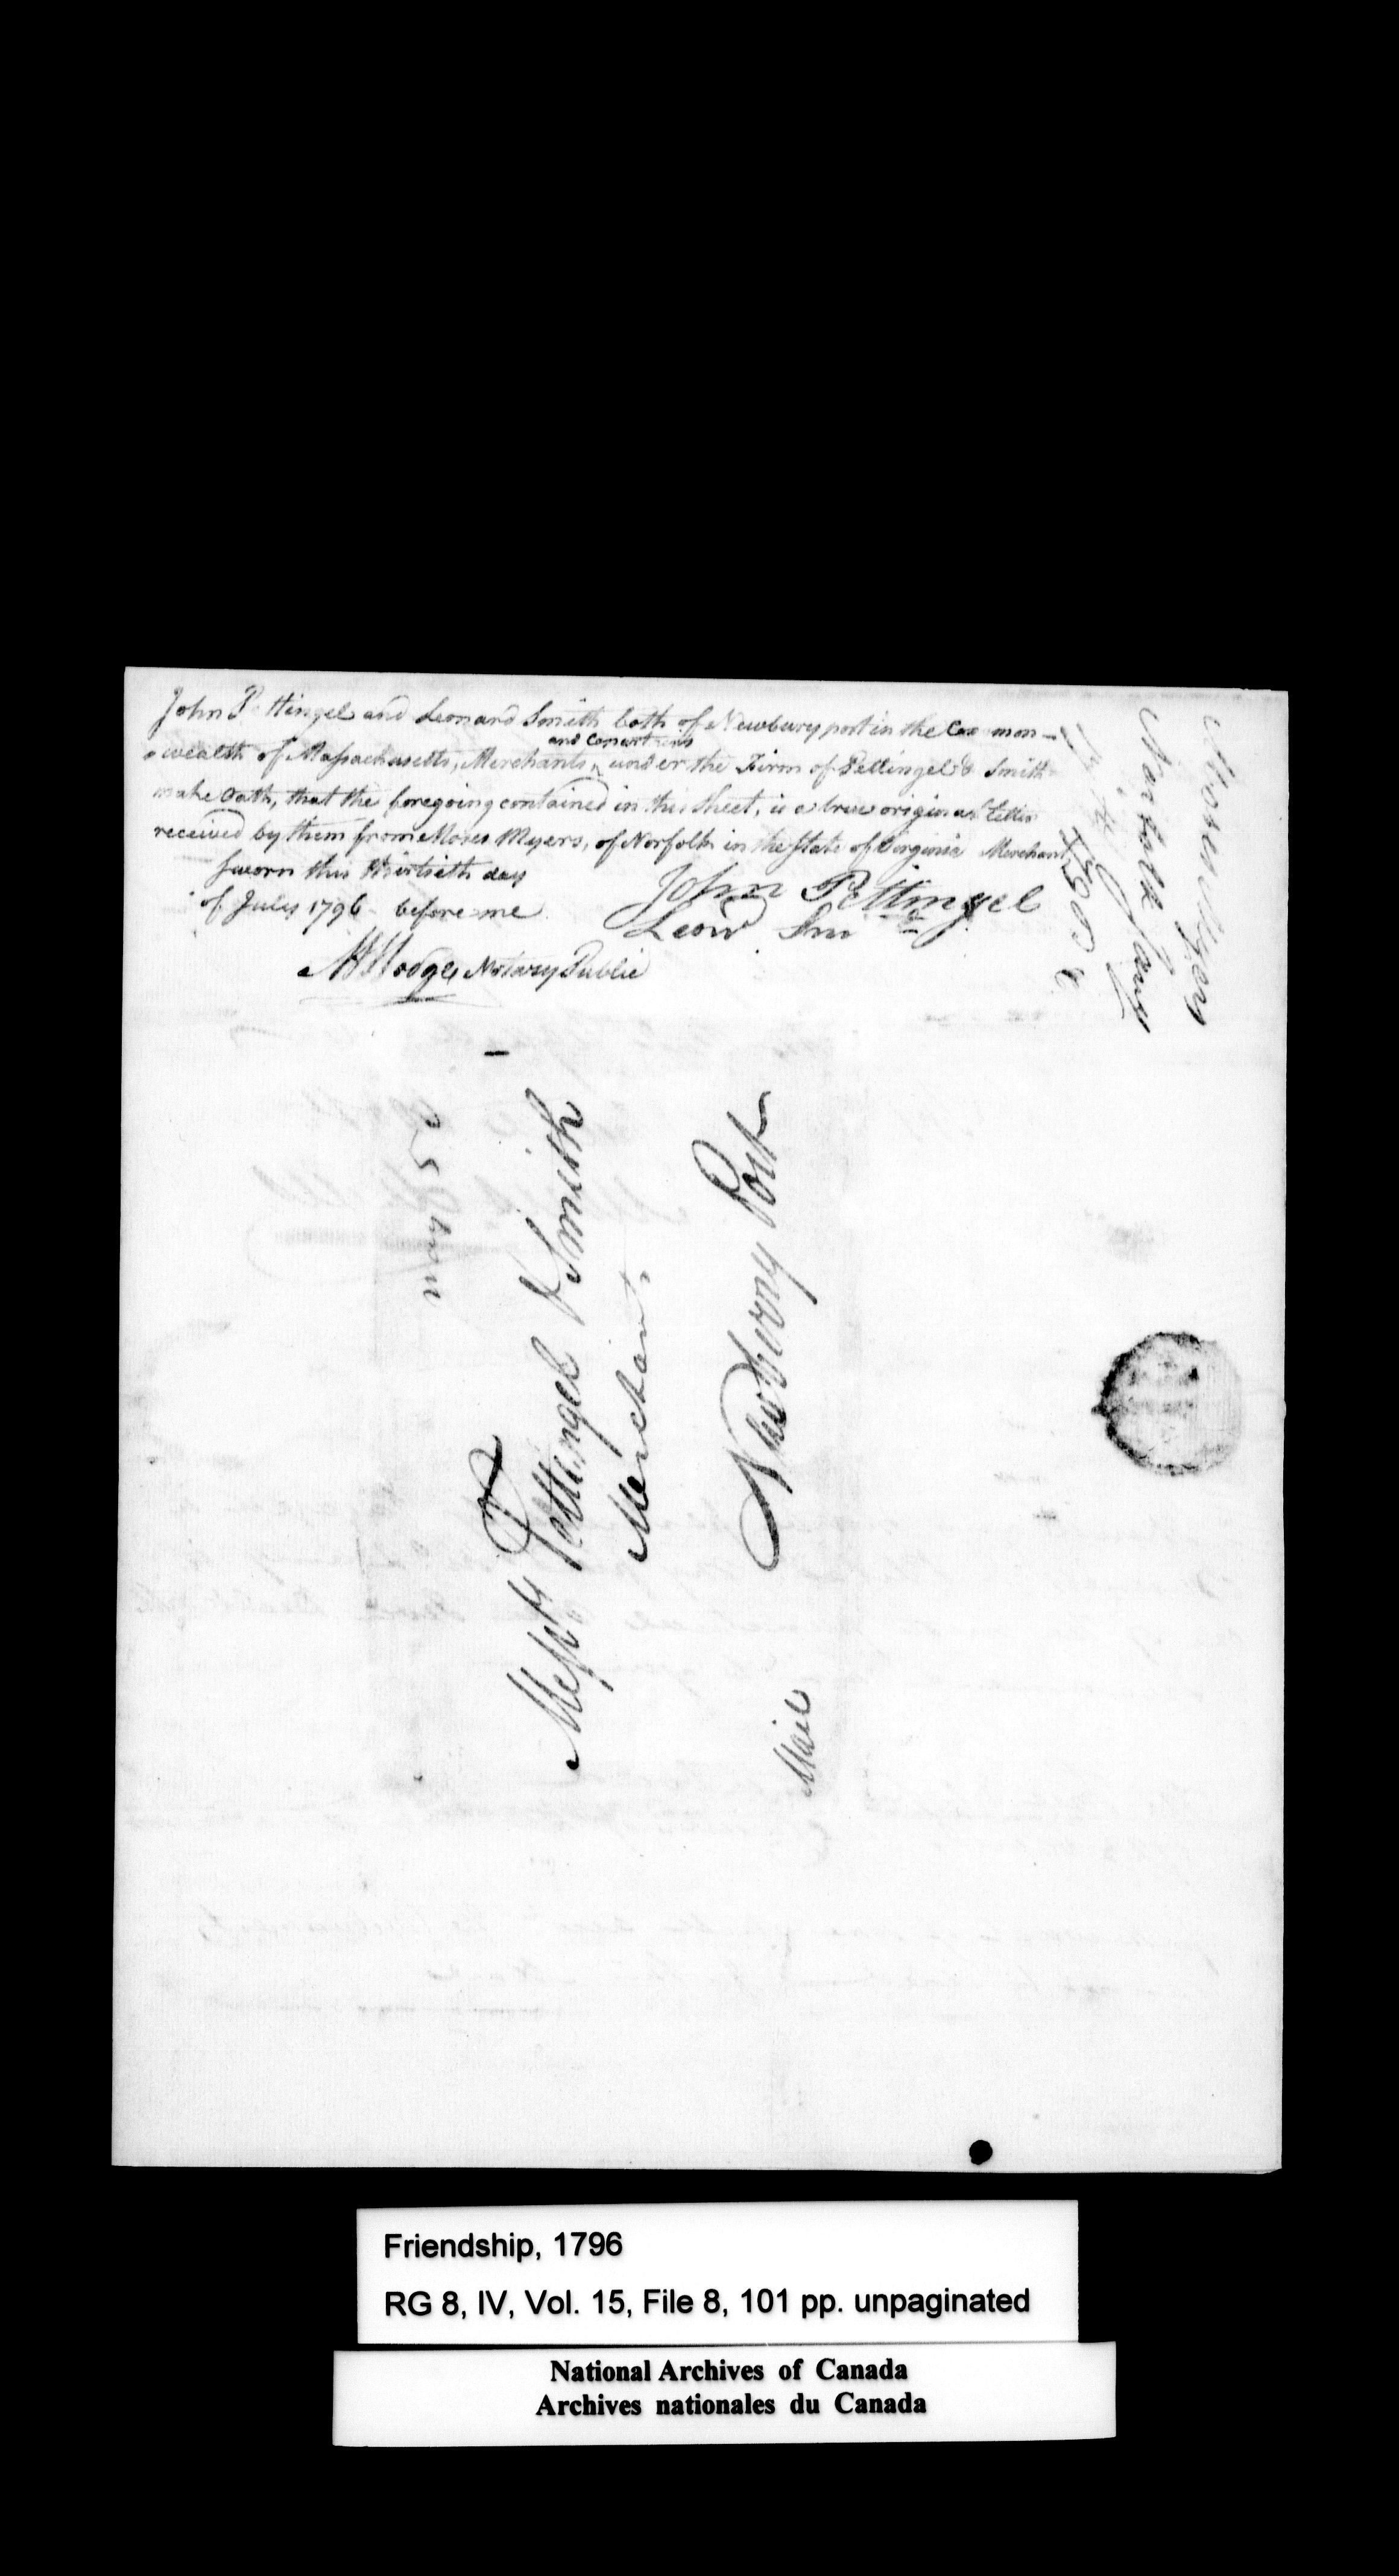 John Pettingel and Leonard Smith both of Newbury port in the Common-
wealth of Massachusetts, Merchants, and Copartners under the Firm of Pettingel & Smith
make Oath, that the foregoing contained in this Sheet, is a true original Letter
received by them from Moses Myers, of Norfolk in the State of Virginia Merchant
Sworn this thirtieth day
of July 1796 before me
John Pettingel
Leond Smith
M Hodge Notary Public
Moses Myers
Norfolk
May 25
Messrs Pettingel & Smith
Merchants
Newberry Port
Mail
Friendship, 1796
RG 8, IV, Vol. 15, File 8, 101 pp. unpaginated
National Archives of Canada
Archives nationales du Canada